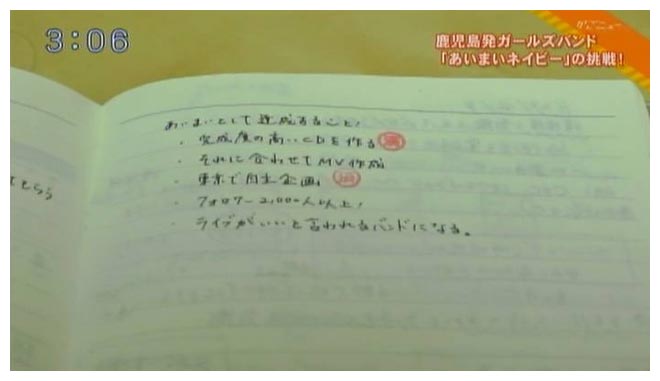 3:06
鹿児島発ガールズバンド
「あいまいネイビー」の挑戦!
あいまいとして達成すること!
・完成度の高いCDを作る
・それに合わせてMV作成
・東京で自主企画
・フォロワー2,000人以上!
・ライブがいいと言われるバンドになる。
てもらう